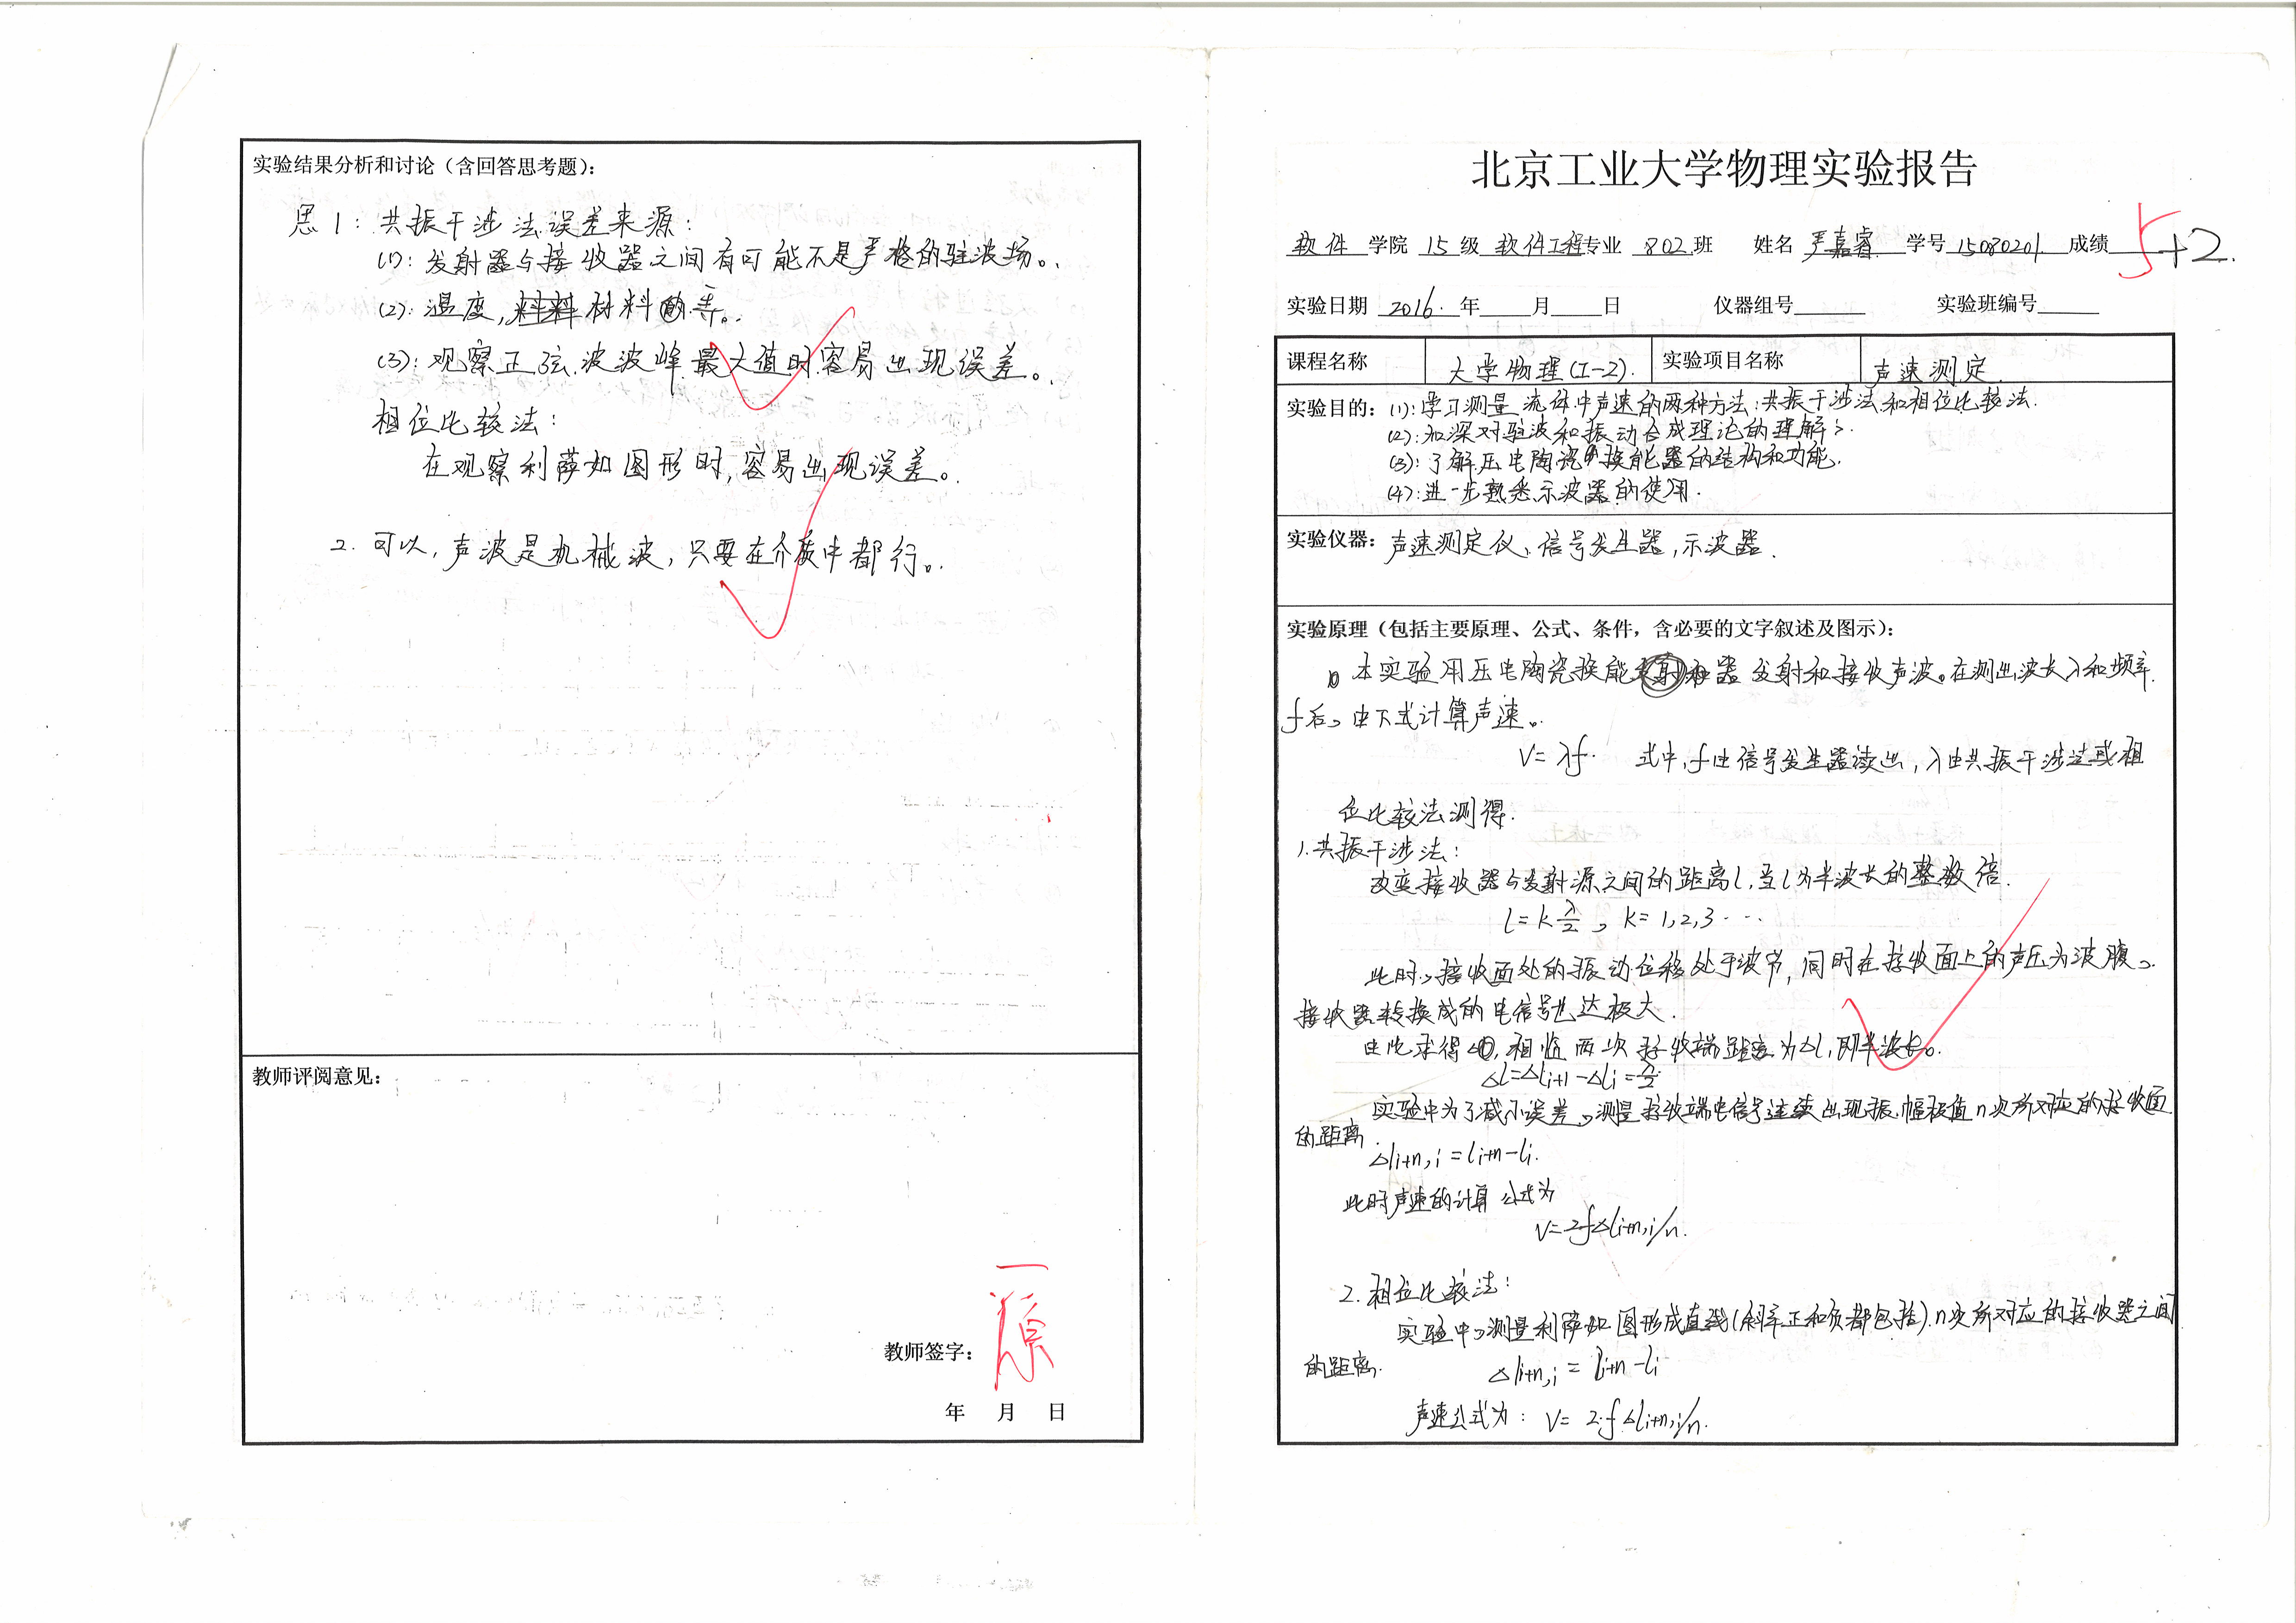 实验结果分析和讨论（含回答思考题）：
思1：共振干涉法误差来源：
(1)：发射器与接收器之间有可能不是严格的驻波场。
(2)：温度，材料等。
(3)：观察正弦波波峰最大值时容易出现误差。
相位比较法：
在观察利萨如图形时，容易出现误差。
2. 可以，声波是机械波，只要在介质中都行。
教师评阅意见：
教师签字：
年 月 日
北京工业大学物理实验报告
软件 学院 15 级 软件工程 专业 802 班 姓名 严嘉睿 学号 15080201 成绩 5+2
实验日期 2016. 年 月 日 仪器组号 实验班编号
课程名称 大学物理(I-2). 实验项目名称 声速测定
实验目的：(1)：学习测量流体中声速的两种方法：共振干涉法和相位比较法.
(2)：加深对驻波和振动合成理论的理解.
(3)：了解压电陶瓷换能器的结构和功能.
(4)：进一步熟悉示波器的使用.
实验仪器：声速测定仪、信号发生器，示波器.
实验原理（包括主要原理、公式、条件，含必要的文字叙述及图示）：
本实验用压电陶瓷换能器发射和接收声波。在测出波长λ和频率
f后，由下式计算声速。
V=λf. 式中，f由信号发生器读出，λ由共振干涉法或相
位比较法测得.
1.共振干涉法：
改变接收器与发射源之间的距离l，当l为半波长的整数倍.
l=k λ/2，k=1,2,3…
此时，接收面处的振动位移处于波节，同时在接收面上的声压为波腹，
接收器转换成的电信号也达极大.
由此求得，相临两次接收端距离为Δl，即半波长。
Δl=Δli+1-Δli=λ/2
实验中为了减小误差，测量接收端电信号连续出现振幅极值n次所对应的接收面
的距离.
Δli+n,i=li+n-li.
此时声速的计算公式为
V=2fΔli+n,i/n.
2.相位比较法：
实验中，测量利萨如图形成直线(斜率正和负都包括)n次所对应的接收器之间
的距离.
Δli+n,i=li+n-li
声速公式为：V=2fΔli+n,i/n.